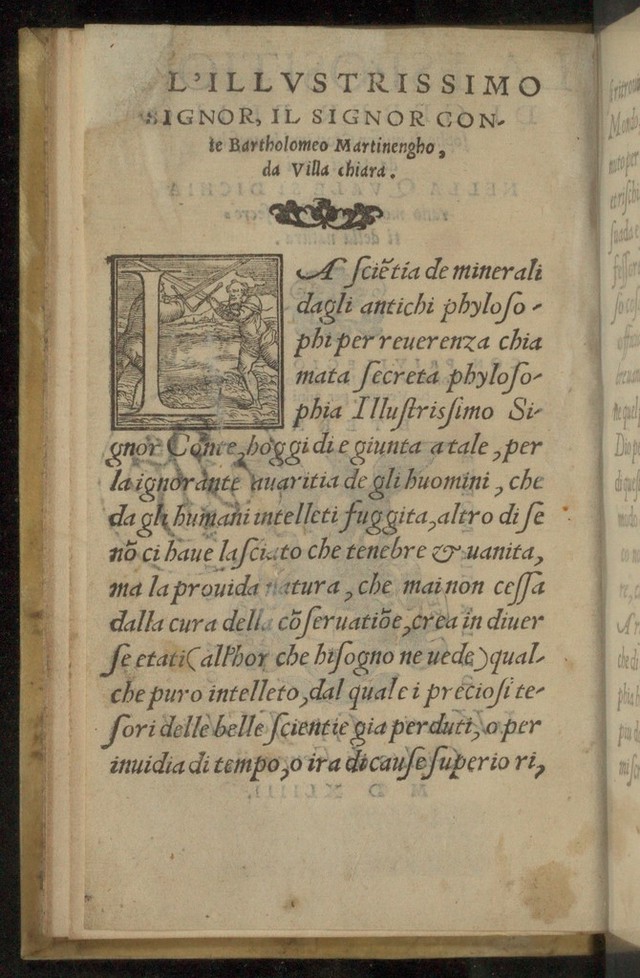 L'ILLVSTRISSIMO
SIGNOR, IL SIGNOR CON-
te Bartholomeo Martinengho,
da Villa chiara.
LA sciẽtia de minerali
dagli antichi phyloso-
phi per reuerenza chia
mata secreta phyloso-
phia Illustrissimo Si-
gnor Conte, hoggi di e giunta a tale, per
la ignorante auaritia de gli huomini, che
da gli humani intelleti fuggita, altro di se
nõ ci haue lasciato che tenebre & uanita,
ma la prouida natura, che mai non cessa
dalla cura della cõseruatiõe, crea in diuer
se etati (all'hor che bisogno ne uede) qual-
che puro intelleto, dal quale i preciosi te-
sori delle belle scientie gia perduti, o per
inuidia di tempo, o ira di cause superiori,